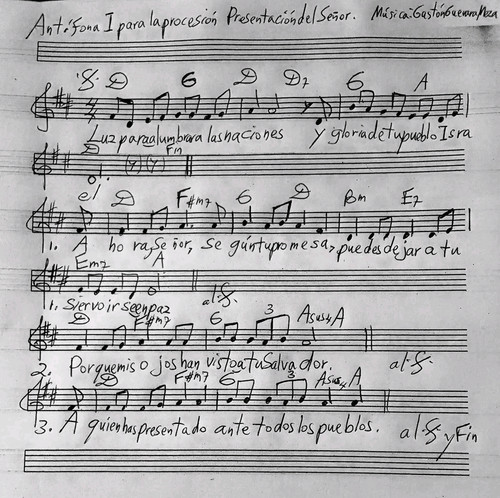 Antífona I para la procesión Presentación del Señor. Música: Gastón Guevara Meza
𝄋 D G D D7 G A
Luz para alumbrar a las naciones y gloria de tu pueblo Isra
D Fin
el D F#m7 G D Bm E7
1. A ho ra, Señor, se gún tu promesa, puedes dejar a tu
Em7 A
1. Siervo irse en paz al 𝄋
D F#m7 G 3 Asus4 A
2. Porque mis o jos han visto a tu Salvador. al 𝄋
D F#m7 G 3 Asus4 A
3. A quien has presentado ante todos los pueblos. al 𝄋 y Fin